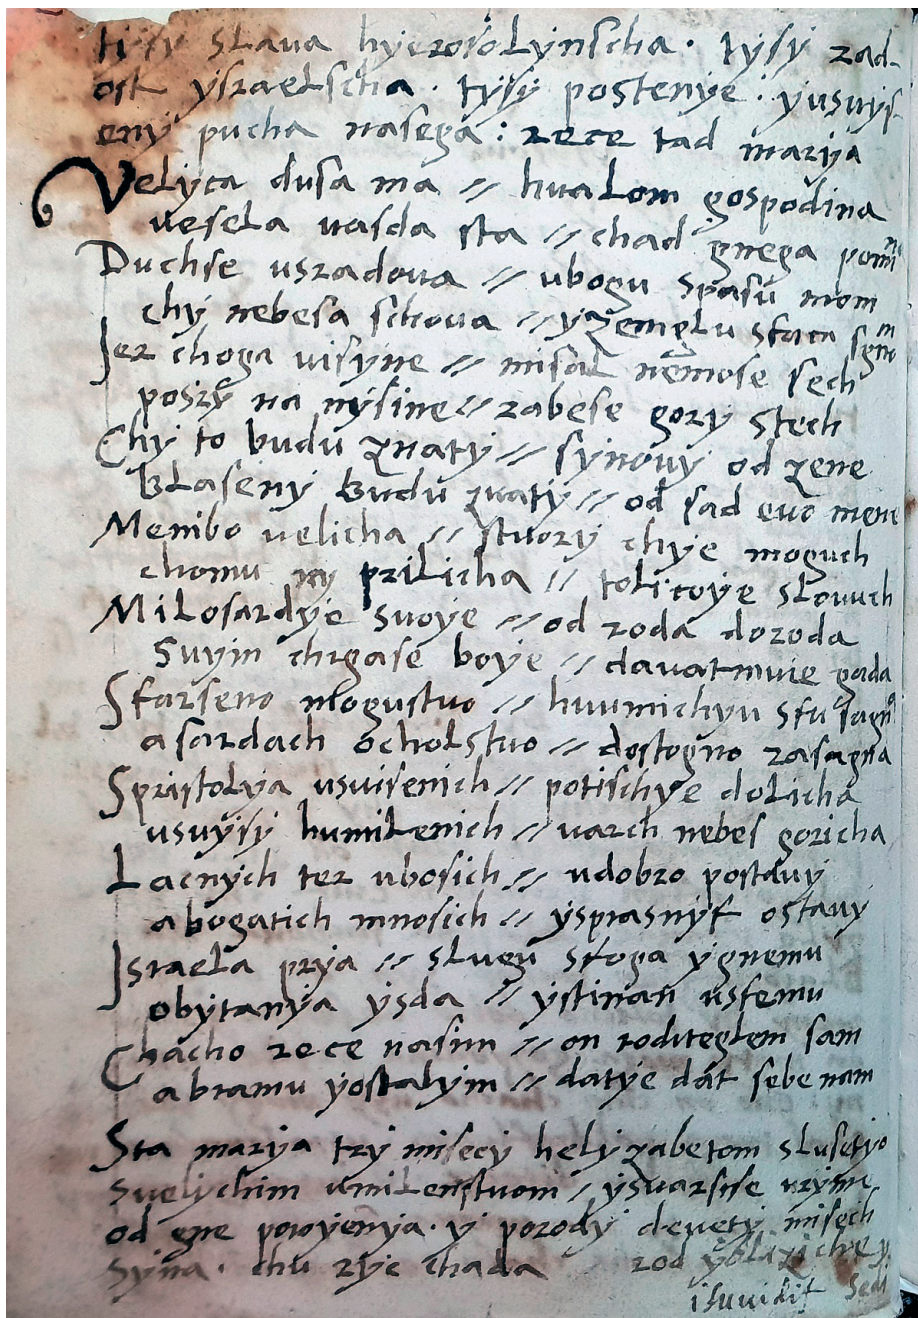 tysy slava hyerosolynscha · tysy rad-
ost ysraelscha · tysy postenye : yusvys-
eny pucha nasega : rece tad marya
Velyca dusa ma // hvalom gospodina
vesela vasda sta // chad gnega
Duchse uszadova // ubogu spasu mom
chy nebesa schova // yzemglu sfata
Jer choga visyne // misal nemose sech
poszy na nysine // zabese gory stech
Chy to budu znaty // synovy od zene
blaseny budu zvaty // od sad evo mene
Menibo velicha // stvory chye moguch
chomu ny prilicha // tolicoye slovuch
Milosardye svoye // od roda doroda
Svym chigase boye // davatmuie goda
Sfarseno mogustvo // huumichyu sfu
a sardach ocholstvo // dostogno rasagna
Spristolya usvisenich // potischye dolicha
usvysy humilenich // varch nebes goricha
Lacnych ter ubosich // udobro postavy
abogatich mnosich // ysprasnyf ostavy
Israela prya // slugu sfoga ygnemu
obytanya ysda // ystinan usfemu
Chacho rece nasim // on roditeglem sam
abramu yostalym // datye dat sebe nam
Sta marya try misecy helyzabetom slusetyo
svelychim umilenstvom / ysvarsise vryme
od gne poroyenya · y porody devety misech
syna · chu rye chada rod
isuuidit